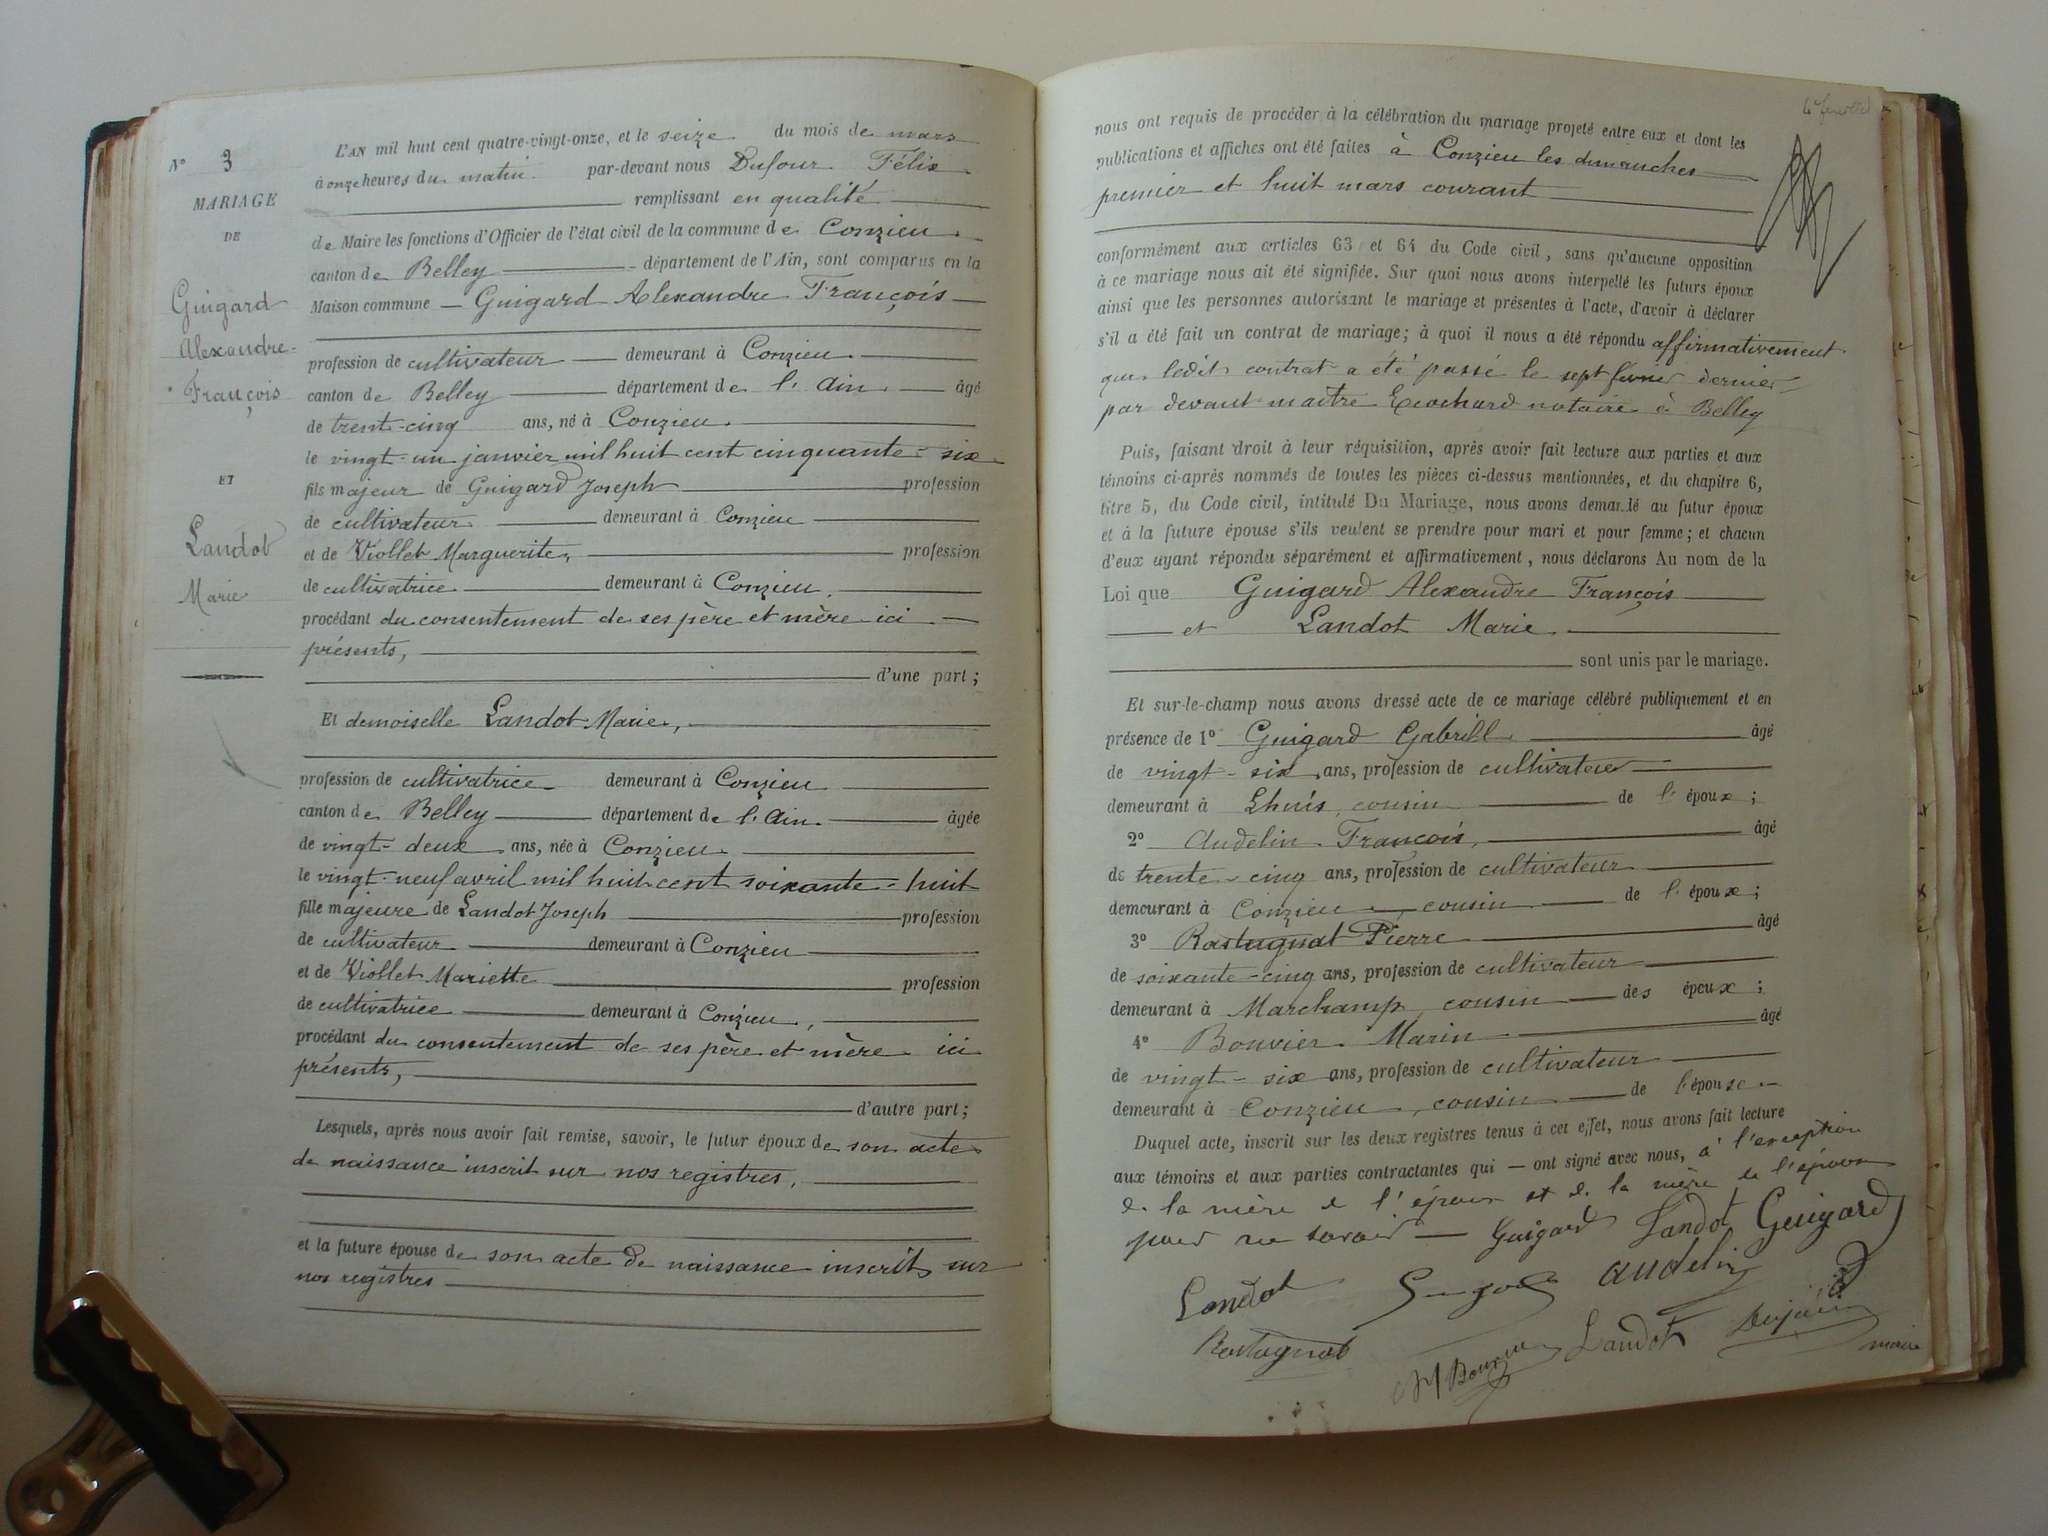 N° 3
MARIAGE
DE
Guigard
Alexandre-
François
ET
Landot
Marie
L'AN mil huit cent quatre-vingt-onze, et le seize du mois de mars
à onze heures du matin. par-devant nous Dufour Félix
remplissant en qualité
de Maire les fonctions d'Officier de l'état civil de la commune de Conzieu
canton de Belley département de l'Ain, sont comparus en la
Maison commune Guigard Alexandre François
profession de cultivateur demeurant à Conzieu
canton de Belley département de l'Ain âgé
de trent-cinq ans, né à Conzieu
le vingt-un janvier mil huit cent cinquante-six
fils majeur de Guigard Joseph profession
de cultivateur demeurant à Conzieu
et de Viollet Marguerite, profession
de cultivatrice demeurant à Conzieu,
procédant du consentement de ses père et mère ici
présents,
d'une part;
Et demoiselle Landot Marie,
profession de cultivatrice demeurant à Conzieu
canton de Belley département de l'Ain âgée
de vingt-deux ans, née à Conzieu
le vingt-neuf avril mil huit cent soixante-huit
fille majeure de Landot Joseph profession
de cultivateur demeurant à Conzieu
et de Viollet Mariette profession
de cultivatrice demeurant à Conzieu,
procédant du consentement de ses père et mère ici
présents,
d'autre part;
Lesquels, après nous avoir fait remise, savoir, le futur époux de son acte
de naissance inscrit sur nos registres,
et la future épouse de son acte de naissance inscrit sur
nos registres
nous ont requis de procéder à la célébration du mariage projeté entre eux et dont les
publications et affiches ont été faites à Conzieu les dimanches
premier et huit mars courant
conformément aux articles 63 et 64 du Code civil, sans qu'aucune opposition
à ce mariage nous ait été signifiée. Sur quoi nous avons interpellé les futurs époux
ainsi que les personnes autorisant le mariage et présentes à l'acte, d'avoir à déclarer
s'il a été fait un contrat de mariage; à quoi il nous a été répondu affirmativement
que ledit contrat a été passé le sept février dernier
par devant maître notaire à Belley
Puis, faisant droit à leur réquisition, après avoir fait lecture aux parties et aux
témoins ci-après nommés de toutes les pièces ci-dessus mentionnées, et du chapitre 6,
titre 5, du Code civil, intitulé Du Mariage, nous avons demandé au futur époux
et à la future épouse s'ils veulent se prendre pour mari et pour femme; et chacun
d'eux ayant répondu séparément et affirmativement, nous déclarons Au nom de la
Loi que Guigard Alexandre François
et Landot Marie
sont unis par le mariage.
Et sur-le-champ nous avons dressé acte de ce mariage célébré publiquement et en
présence de 1° Guigard Gabrill âgé
de vingt-six ans, profession de cultivateur
demeurant à Lhuis, cousin de l'époux;
2° Audelin François, âgé
de trente-cinq ans, profession de cultivateur
demeurant à Conzieu, cousin de l'époux;
3° Rastugnat Pierre âgé
de soixante-cinq ans, profession de cultivateur
demeurant à Marchamp, cousin des époux;
4° Bouvier Marin âgé
de vingt-six ans, profession de cultivateur
demeurant à Conzieu, cousin de l'épouse
Duquel acte, inscrit sur les deux registres tenus à cet effet, nous avons fait lecture
aux témoins et aux parties contractantes qui ont signé avec nous, à l'exception
de la mère de l'époux et de la mère de l'épouse
pour ne savoir Guigard Landot Guigard
Landot Audelin
Rastugnat Landot maire